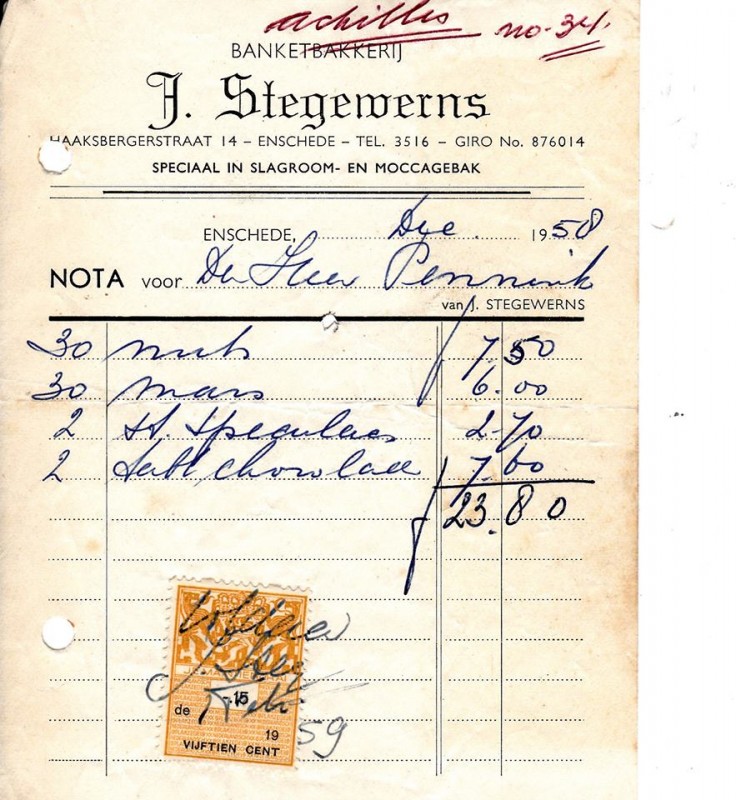 Achilles no. 34.
BANKETBAKKERIJ
J. Stegewerns
HAAKSBERGERSTRAAT 14 – ENSCHEDE – TEL. 3516 – GIRO No. 876014
SPECIAAL IN SLAGROOM- EN MOCCAGEBAK
ENSCHEDE, Dec. 1958
NOTA voor De Heer Pennink
van J. STEGEWERNS
30 nuts 7.50
30 mars 6.00
2 st. speculaas 2.70
2 chocolade 7.60
23.80
Voldaan
J. Steg
15
de 19 59
VIJFTIEN CENT